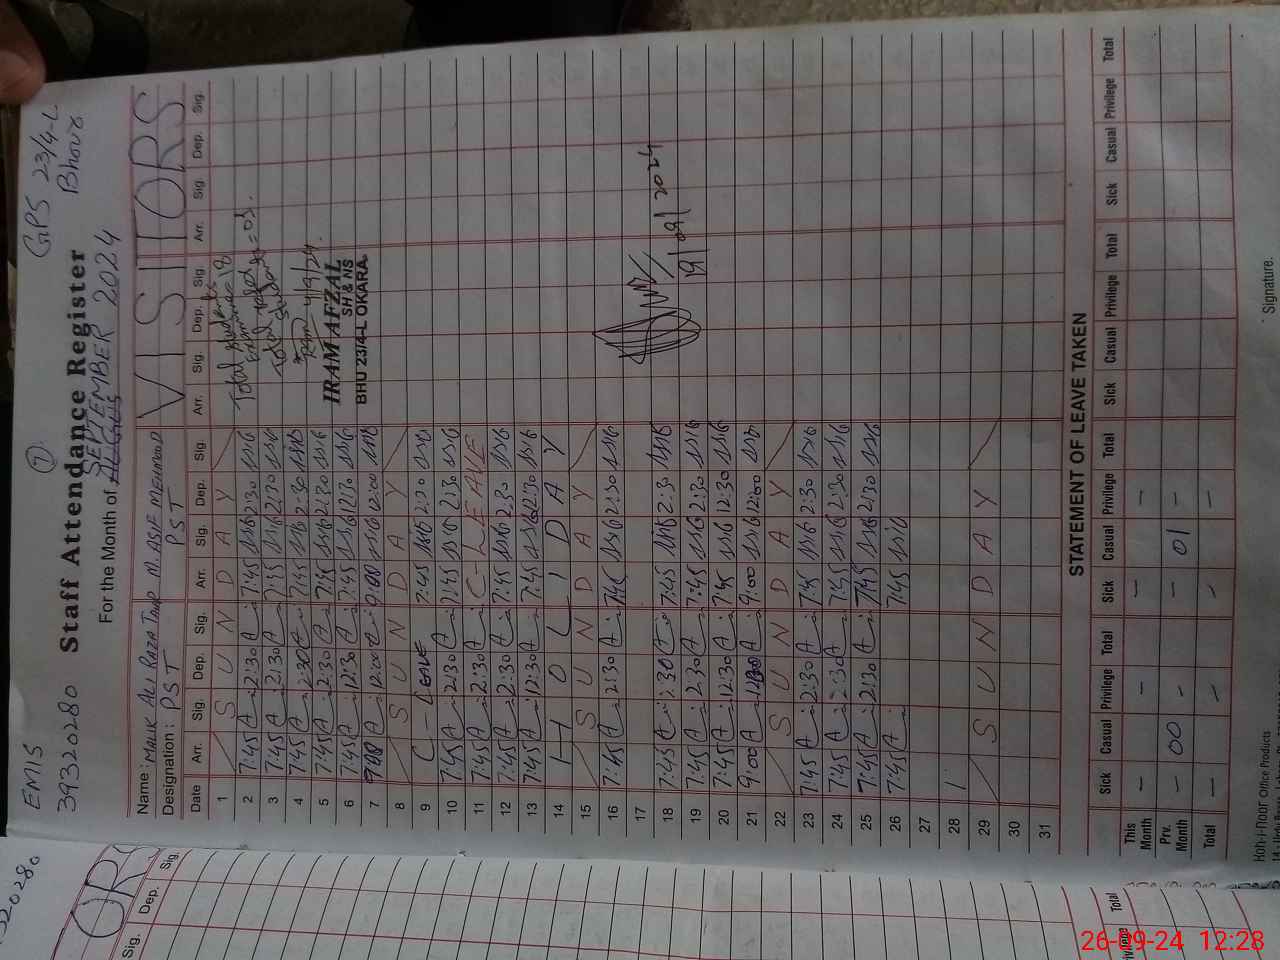 EMIS
39320280
7
GPS 23/4-L
Bhour
Staff Attendance Register
For the Month of SEPTEMBER 2024
Name : MALIK ALI RAZA M. ASIF MEHMOOD VISITORS
Designation : PST PST
Date Arr. Sig. Dep. Sig. Arr. Sig. Dep. Sig. Arr. Sig. Dep. Sig. Arr. Sig. Dep. Sig.
1 SUNDAY
2 7:45 2:30 7:45 2:30
3 7:45 2:30 7:45 2:30
4 7:45 2:30 7:45 2:30
5 7:45 2:30 7:45 2:30
6 7:45 12:30 7:45 12:30
7 12:00 9:00 12:00
8 SUNDAY
9 C-Leave 7:45 2:30
10 7:45 2:30 7:45 2:30
11 7:45 2:30 C-LEAVE
12 7:45 2:30 7:45 2:30
13 7:45 12:30 7:45 12:30
14 HOLIDAY
15 SUNDAY
16 7:45 2:30 7:45 2:30
17
18 7:45 2:30 7:45 2:30
19 7:45 2:30 7:45 2:30
20 7:45 12:30 7:45 12:30
21 9:00 9:00 12:00
22 SUNDAY
23 7:45 2:30 7:45 2:30
24 7:45 2:30 7:45 2:30
25 7:45 2:30 7:45 2:30
26 7:45 7:45
27
28
29 SUNDAY
30
31
Total students
Total
4/9/24
IRAM AFZAL
SH & NS
BHU 23/4-L OKARA.
19/09/2024
STATEMENT OF LEAVE TAKEN
Sick Casual Privilege Total Sick Casual Privilege Total Sick Casual Privilege Total Sick Casual Privilege Total
This Month - - - -
Prv. Month - 00 - - 01 -
Total - - - -
Signature.
Koh-i-Noor Office Products
320280
ORS
Sig. Dep. Sig.
Privilege Total
26-09-24 12:28